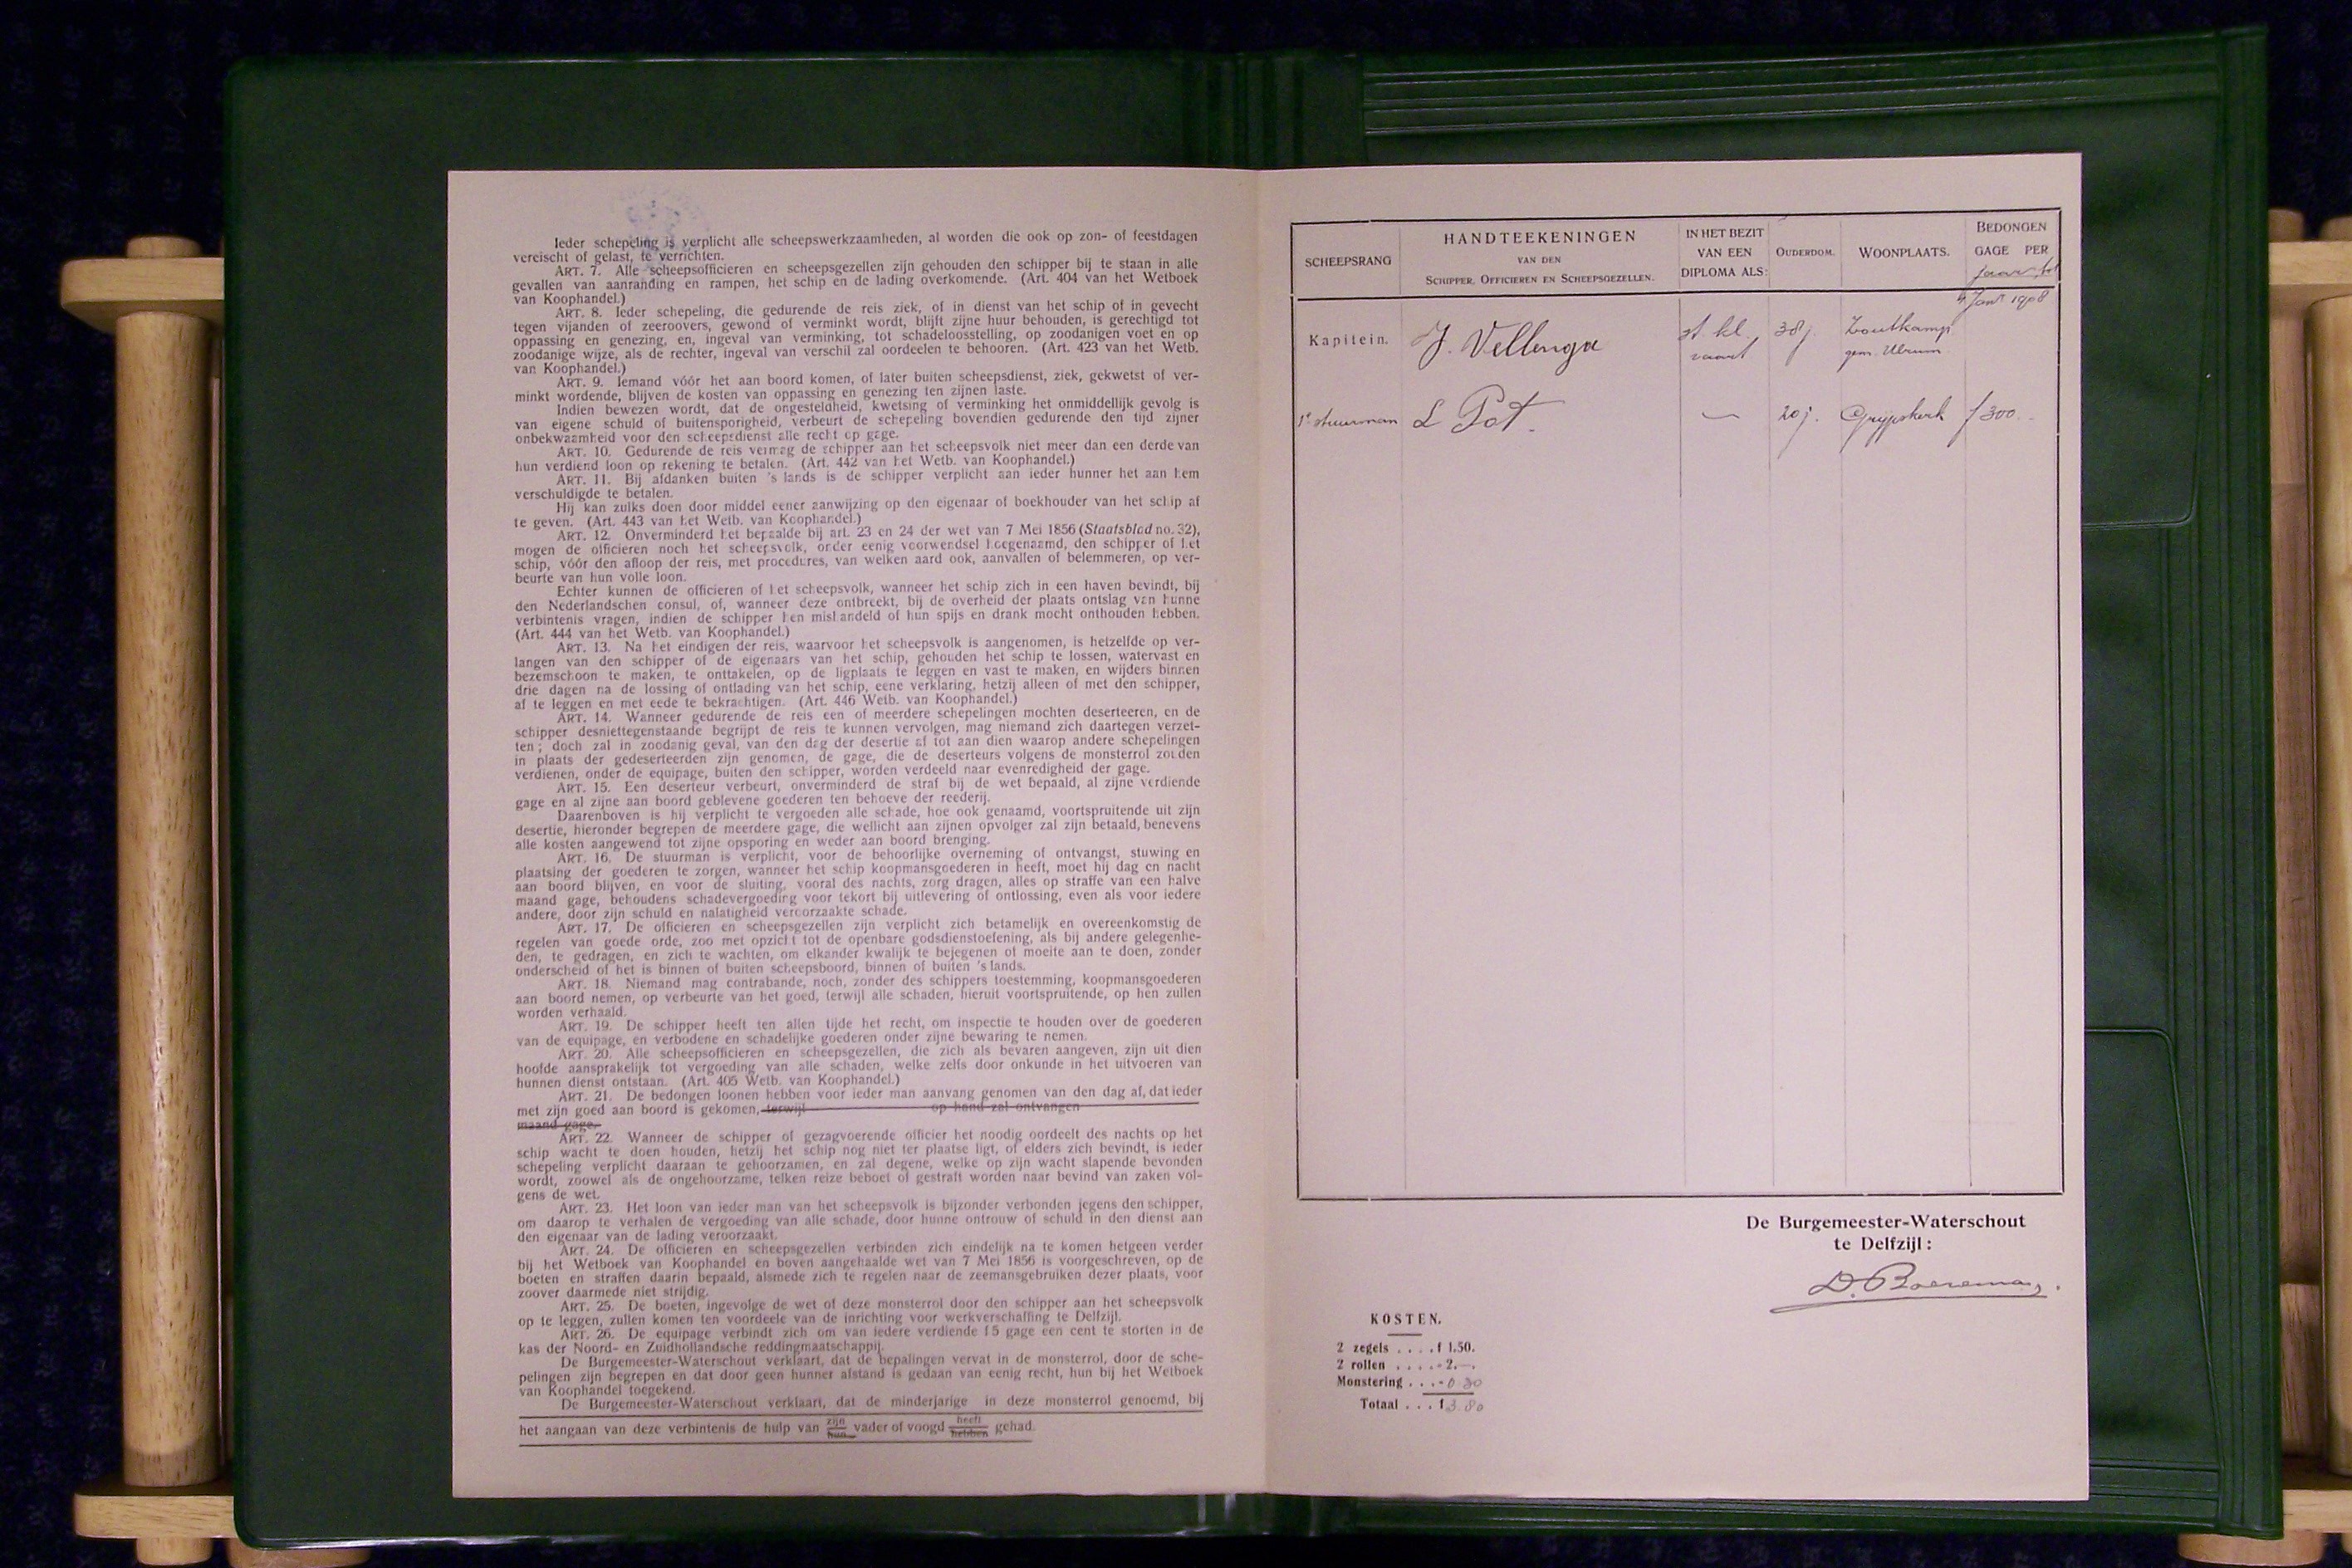 Ieder schepeling is verplicht alle scheepswerkzaamheden, al worden die ook op zon- of feestdagen
vereischt of gelast, te verrichten.
ART. 7. Alle scheepsofficieren en scheepsgezellen zijn gehouden den schipper bij te staan in alle
gevallen van aanranding en rampen, het schip en de lading overkomende. (Art. 404 van het Wetboek
van Koophandel.)
ART. 8. Ieder schepeling, die gedurende de reis ziek, of in dienst van het schip of in gevecht
tegen vijanden of zeeroovers, gewond of verminkt wordt, blijft zijne huur behouden, is gerechtigd tot
oppassing en genezing, en, ingeval van verminking, tot schadeloosstelling, op zoodanigen voet en op
zoodanige wijze, als de rechter, ingeval van verschil zal oordeelen te behooren. (Art. 423 van het Wetb.
van Koophandel.)
ART. 9. Iemand vóór het aan boord komen, of later buiten scheepsdienst, ziek, gekwetst of ver-
minkt wordende, blijven de kosten van oppassing en genezing ten zijnen laste.
Indien bewezen wordt, dat de ongesteldheid, kwetsing of verminking het onmiddelijk gevolg is
van eigene schuld of buitensporigheid, verbeurt de schepeling bovendien gedurende den tijd zijner
onbekwaamheid voor den scheepsdienst alle recht op gage.
ART. 10. Gedurende de reis vermag de schipper aan het scheepsvolk niet meer dan een derde van
hun verdiend loon op rekening te betalen. (Art. 442 van het Wetb. van Koophandel.)
ART. 11. Bij afdanken buiten 's lands is de schipper verplicht aan ieder hunner het aan hem
verschuldigde te betalen.
Hij kan zulks doen door middel eener aanwijzing op den eigenaar of boekhouder van het schip af
te geven. (Art. 443 van het Wetb. van Koophandel.)
ART. 12. Onverminderd het bepaalde bij art. 23 en 24 der wet van 7 Mei 1856 (Staatsblad no. 32),
mogen de officieren noch het scheepsvolk, onder eenig voorwendsel hoegenaamd, den schipper of het
schip, vóór den afloop der reis, met procedures, van welken aard ook, aanvallen of belemmeren, op ver-
beurte van hun volle loon.
Echter kunnen de officieren of het scheepsvolk, wanneer het schip zich in een haven bevindt, bij
den Nederlandschen consul, of, wanneer deze ontbreekt, bij de overheid der plaats ontslag van hunne
verbintenis vragen, indien de schipper hen mishandeld of hun spijs en drank mocht onthouden hebben.
(Art. 444 van het Wetb. van Koophandel.)
ART. 13. Na het eindigen der reis, waarvoor het scheepsvolk is aangenomen, is hetzelfde op ver-
langen van den schipper of de eigenaars van het schip, gehouden het schip te lossen, watervast en
bezemschoon te maken, te onttakelen, op de ligplaats te leggen en vast te maken, en wijders binnen
drie dagen na de lossing of ontlading van het schip, eene verklaring, hetzij alleen of met den schipper,
af te leggen en met eede te bekrachtigen. (Art. 446 Wetb. van Koophandel.)
ART. 14. Wanneer gedurende de reis een of meerdere schepelingen mochten deserteeren, en de
schipper desniettegenstaande begrijpt de reis te kunnen vervolgen, mag niemand zich daartegen verzet-
ten; doch zal in zoodanig geval, van den dag der desertie af tot aan dien waarop andere schepelingen
in plaats der gedeserteerden zijn genomen, de gage, die de deserteurs volgens de monsterrol zouden
verdienen, onder de equipage, buiten den schipper, worden verdeeld naar evenredigheid der gage.
ART. 15. Een deserteur verbeurt, onverminderd de straf bij de wet bepaald, al zijne verdiende
gage en al zijne aan boord geblevene goederen ten behoeve der reederij.
Daarenboven is hij verplicht te vergoeden alle schade, hoe ook genaamd, voortspruitende uit zijn
desertie, hieronder begrepen de meerdere gage, die wellicht aan zijnen opvolger zal zijn betaald, benevens
alle kosten aangewend tot zijne opsporing en weder aan boord brenging.
ART. 16. De stuurman is verplicht, voor de behoorlijke overneming of ontvangst, stuwing en
plaatsing der goederen te zorgen, wanneer het schip koopmansgoederen in heeft, moet hij dag en nacht
aan boord blijven, en voor de sluiting, vooral des nachts, zorg dragen, alles op straffe van een halve
maand gage, behoudens schadevergoeding voor tekort bij uitlevering of ontlossing, even als voor iedere
andere, door zijn schuld en nalatigheid veroorzaakte schade.
ART. 17. De officieren en scheepsgezellen zijn verplicht zich betamelijk en overeenkomstig de
regelen van goede orde, zoo met opzicht tot de openbare godsdienstoefening, als bij andere gelegenhe-
den, te gedragen, en zich te wachten, om elkander kwalijk te bejegenen of moeite aan te doen, zonder
onderscheid of het is binnen of buiten scheepsboord, binnen of buiten 's lands.
ART. 18. Niemand mag contrabande, noch, zonder des schippers toestemming, koopmansgoederen
aan boord nemen, op verbeurte van het goed, terwijl alle schaden, hieruit voortspruitende, op hen zullen
worden verhaald.
ART. 19. De schipper heeft ten allen tijde het recht, om inspectie te houden over de goederen
van de equipage, en verbodene en schadelijke goederen onder zijne bewaring te nemen.
ART. 20. Alle scheepsofficieren en scheepsgezellen, die zich als bevaren aangeven, zijn uit dien
hoofde aansprakelijk tot vergoeding van alle schaden, welke zelfs door onkunde in het uitvoeren van
hunnen dienst ontstaan. (Art. 405 Wetb. van Koophandel.)
ART. 21. De bedongen loonen hebben voor ieder man aanvang genomen van den dag af, dat ieder
met zijn goed aan boord is gekomen, terwijl op hand zal ontvangen
maand gage.
ART. 22. Wanneer de schipper of gezagvoerende officier het noodig oordeelt des nachts op het
schip wacht te doen houden, hetzij het schip nog niet ter plaatse ligt, of elders zich bevindt, is ieder
schepeling verplicht daaraan te gehoorzamen, en zal degene, welke op zijn wacht slapende bevonden
wordt, zoowel als de ongehoorzame, telken reize beboet of gestraft worden naar bevind van zaken vol-
gens de wet.
ART. 23. Het loon van ieder man van het scheepsvolk is bijzonder verbonden jegens den schipper,
om daarop te verhalen de vergoeding van alle schade, door hunne ontrouw of schuld in den dienst aan
den eigenaar van de lading veroorzaakt.
ART. 24. De officieren en scheepsgezellen verbinden zich eindelijk na te komen hetgeen verder
bij het Wetboek van Koophandel en boven aangehaalde wet van 7 Mei 1856 is voorgeschreven, op de
boeten en straffen daarin bepaald, alsmede zich te regelen naar de zeemansgebruiken dezer plaats, voor
zoover daarmede niet strijdig.
ART. 25. De boeten, ingevolge de wet of deze monsterrol door den schipper aan het scheepsvolk
op te leggen, zullen komen ten voordeele van de inrichting voor werkverschaffing te Delfzijl.
ART. 26. De equipage verbindt zich om van iedere verdiende f 5 gage een cent te storten in de
kas der Noord- en Zuidhollandsche reddingmaatschappij.
De Burgemeester-Waterschout verklaart, dat de bepalingen vervat in de monsterrol, door de sche-
pelingen zijn begrepen en dat door geen hunner afstand is gedaan van eenig recht, hun bij het Wetboek
van Koophandel toegekend.
De Burgemeester-Waterschout verklaart, dat de minderjarige in deze monsterrol genoemd, bij
het aangaan van deze verbintenis de hulp van zijn hun vader of voogd heeft hebben gehad.
SCHEEPSRANG
HANDTEEKENINGEN
VAN DEN
SCHIPPER, OFFICIEREN EN SCHEEPSGEZELLEN.
IN HET BEZIT
VAN EEN
DIPLOMA ALS:
OUDERDOM.
WOONPLAATS.
BEDONGEN
GAGE PER
jaar tot
4 Jan 1908
Kapitein. J. Vellenga st. kl. 38 j. Zoutkamp
vaart gem. Ulrum
1e stuurman L Pot. — 20 j. Grijpskerk f 300.-
De Burgemeester-Waterschout
te Delfzijl:
D. Boerema
KOSTEN.
2 zegels . . . . f 1.50.
2 rollen . . . . - 2.—.
Monstering . . . - 0.30
Totaal . . . f 3.80